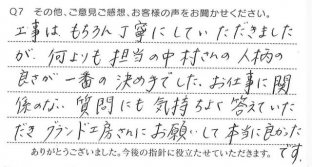 Q7 その他、ご意見ご感想、お客様の声をお聞かせください。
工事は、もちろん丁寧にしていただきました
が、何よりも担当の中村さんの人柄の
良さが一番の決め手でした。お仕事に関
係のない質問にも気持ちよく答えていた
だきブランド工房さんにお願いして本当に良かった
です。
ありがとうございました。今後の指針に役立たせていただきます。